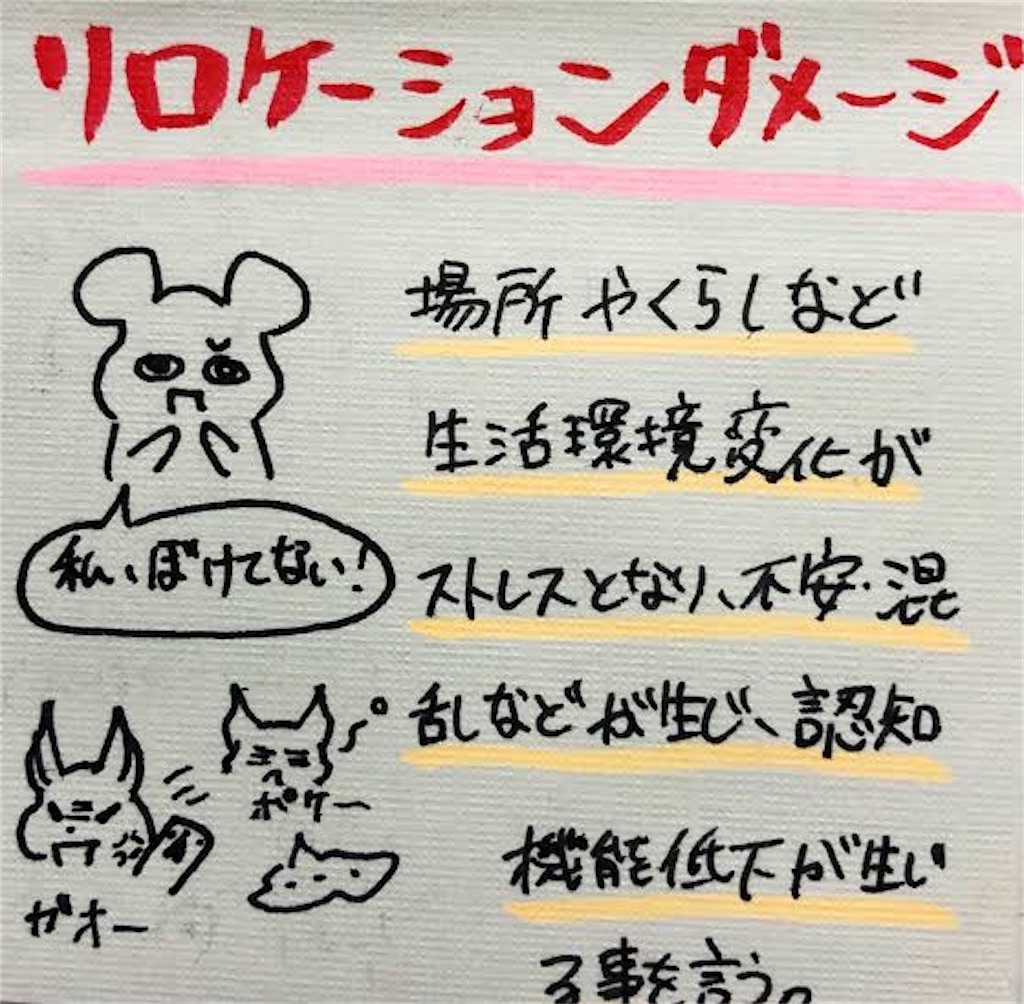 リロケーションダメージ
場所やくらしなど
生活環境変化が
ストレスとなり、不安・混
乱しなどが生じ、認知
機能低下が生じ
る事を言う。
私、ぼけてない!
ポケー
ガオー